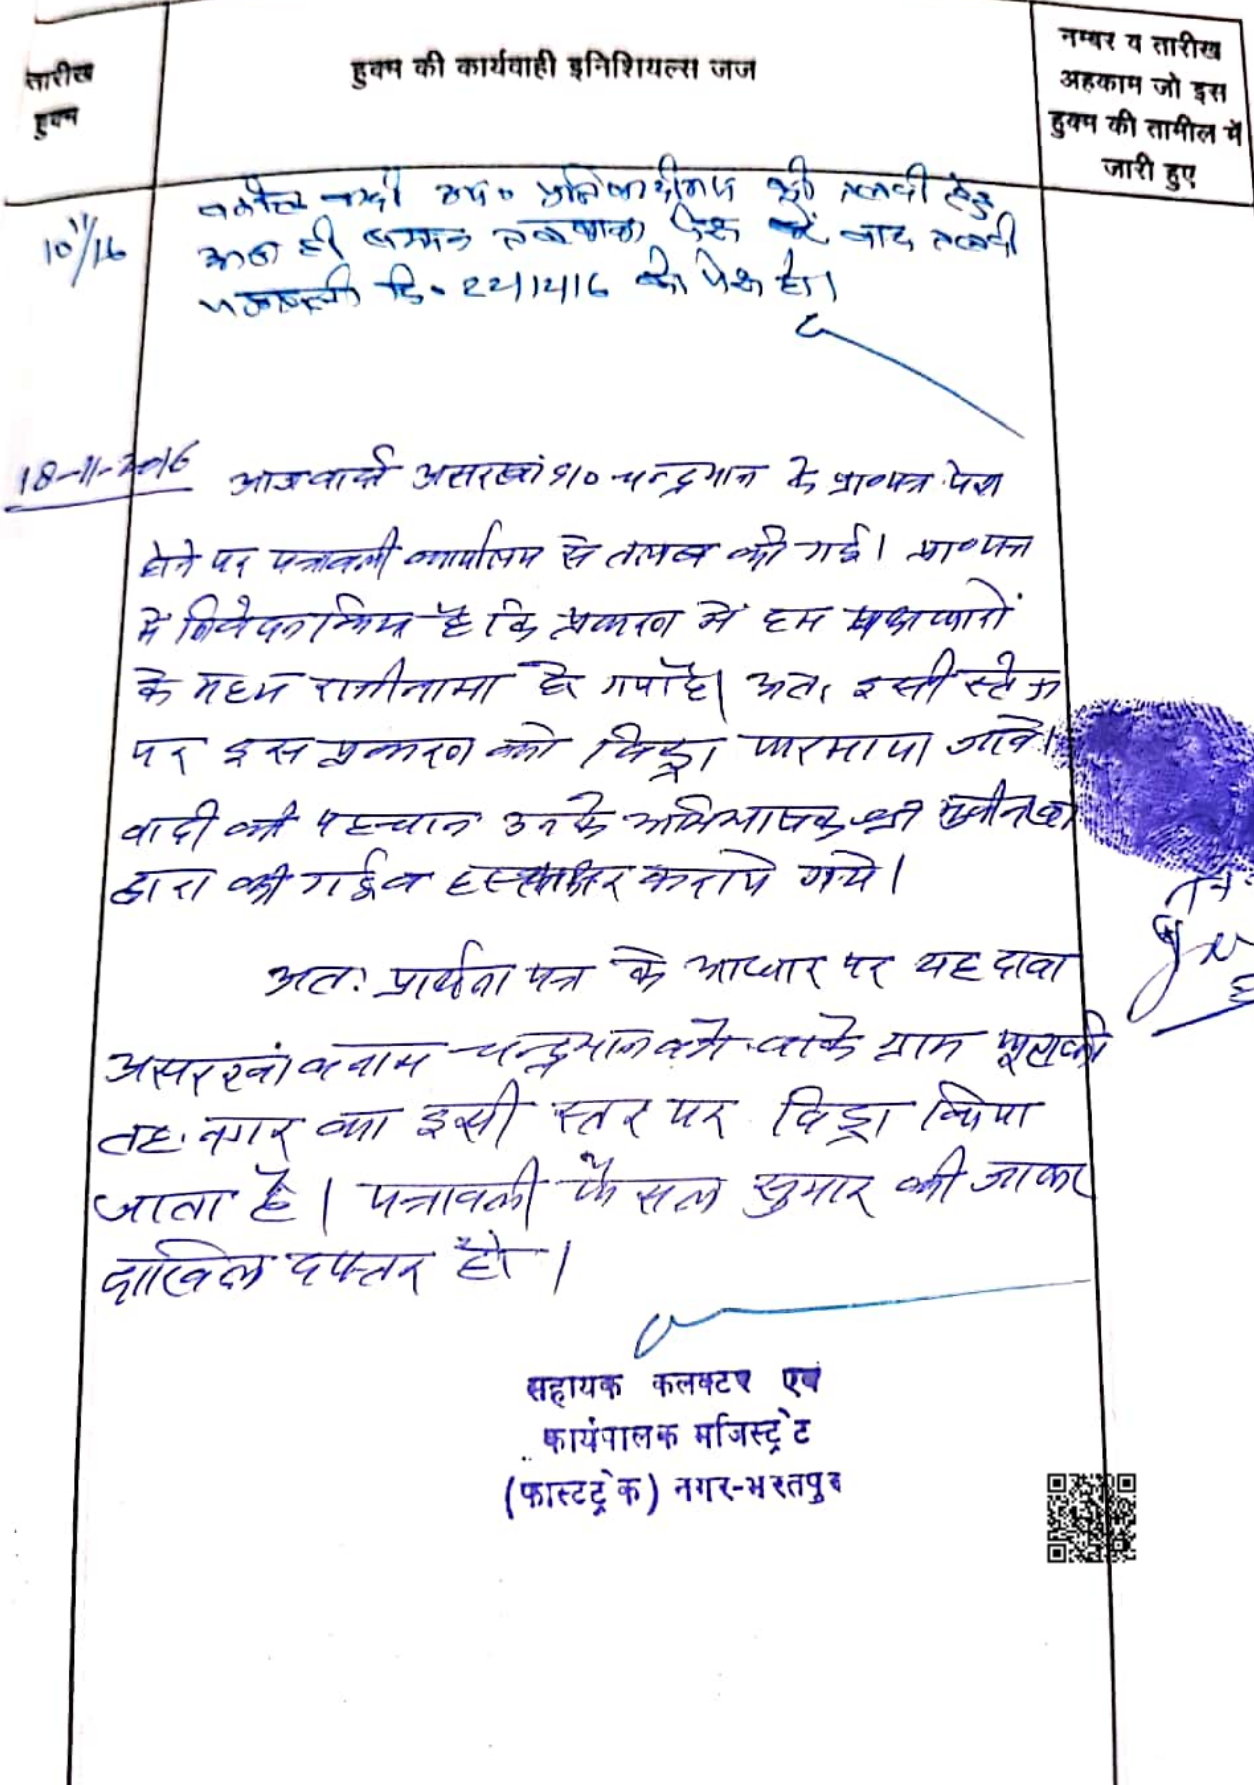 तारीख
हुक्म
हुक्म की कार्यवाही इनिशियल्स जज
नम्बर व तारीख
अहकाम जो इस
हुक्म की तामील में
जारी हुए
10/11/16
वकील वादी उप० प्रतिवादीगण की तलवी हेतु
आज ही सम्मन तलवाना पेश करें वाद तलवी
पत्रावली दि. 22/12/16 को पेश हो।
18-11-2016
आज वादी असरखां S/o चन्द्रभान के प्रा०पत्र पेश
होने पर पत्रावली कार्यालय से तलब की गई। प्रा०पत्र
में निवेदन किया है कि प्रकरण में हम पक्षकारों
के मध्य राजीनामा हो गया है। अतः इसी स्टेज
पर इस प्रकरण को विड्रा फरमाया जावे।
वादी की पहचान उनके अभिभाषक श्री
द्वारा की गई व हस्ताक्षर कराये गये।
अतः प्रार्थना पत्र के आधार पर यह दावा
असरखां बनाम चन्द्रभान वगै. वाके ग्राम
तह. नगर का इसी स्तर पर विड्रा किया
जाता है। पत्रावली फैसल सुमार की जाकर
दाखिल दफ्तर हो।
सहायक कलक्टर एवं
कार्यपालक मजिस्ट्रेट
(फास्टट्रेक) नगर-भरतपुर